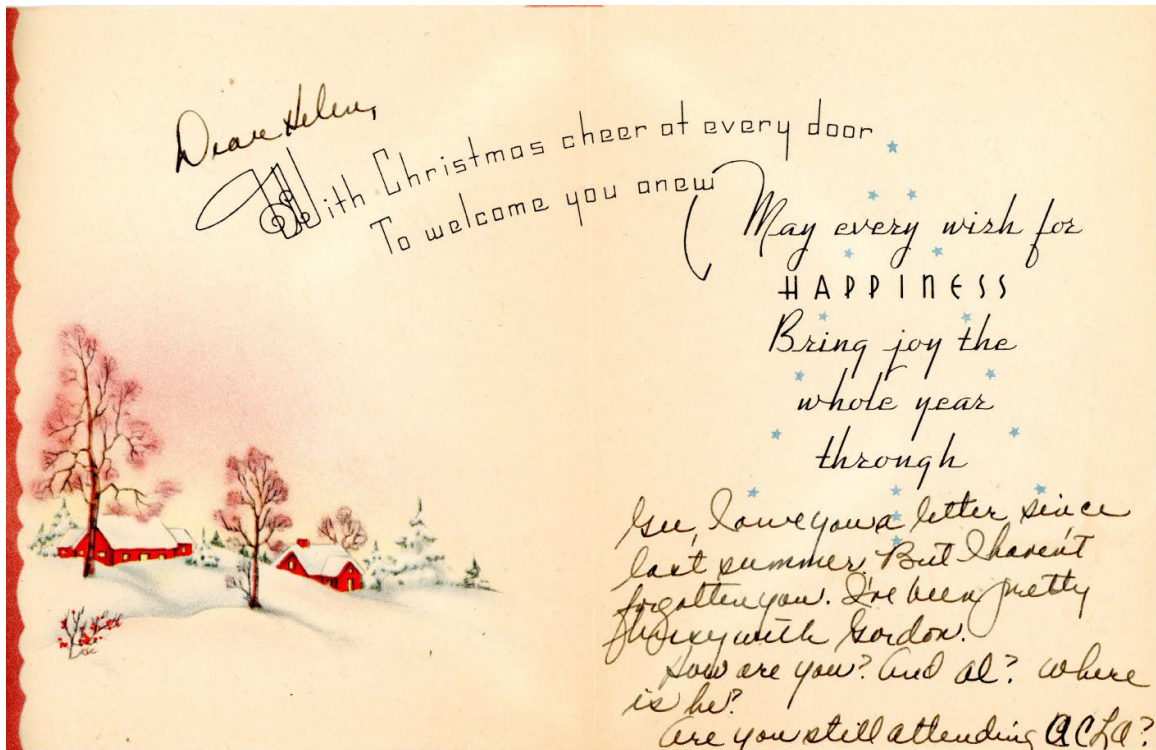 Dear Helen,
With Christmas cheer at every door
To welcome you anew
May every wish for
HAPPINESS
Bring joy the
whole year
through
Gee, I owe you a letter since
last summer. But I haven't
forgotten you. I've been pretty
busy with Gordon.
How are you? And Al? Where
is he?
Are you still attending UCLA?